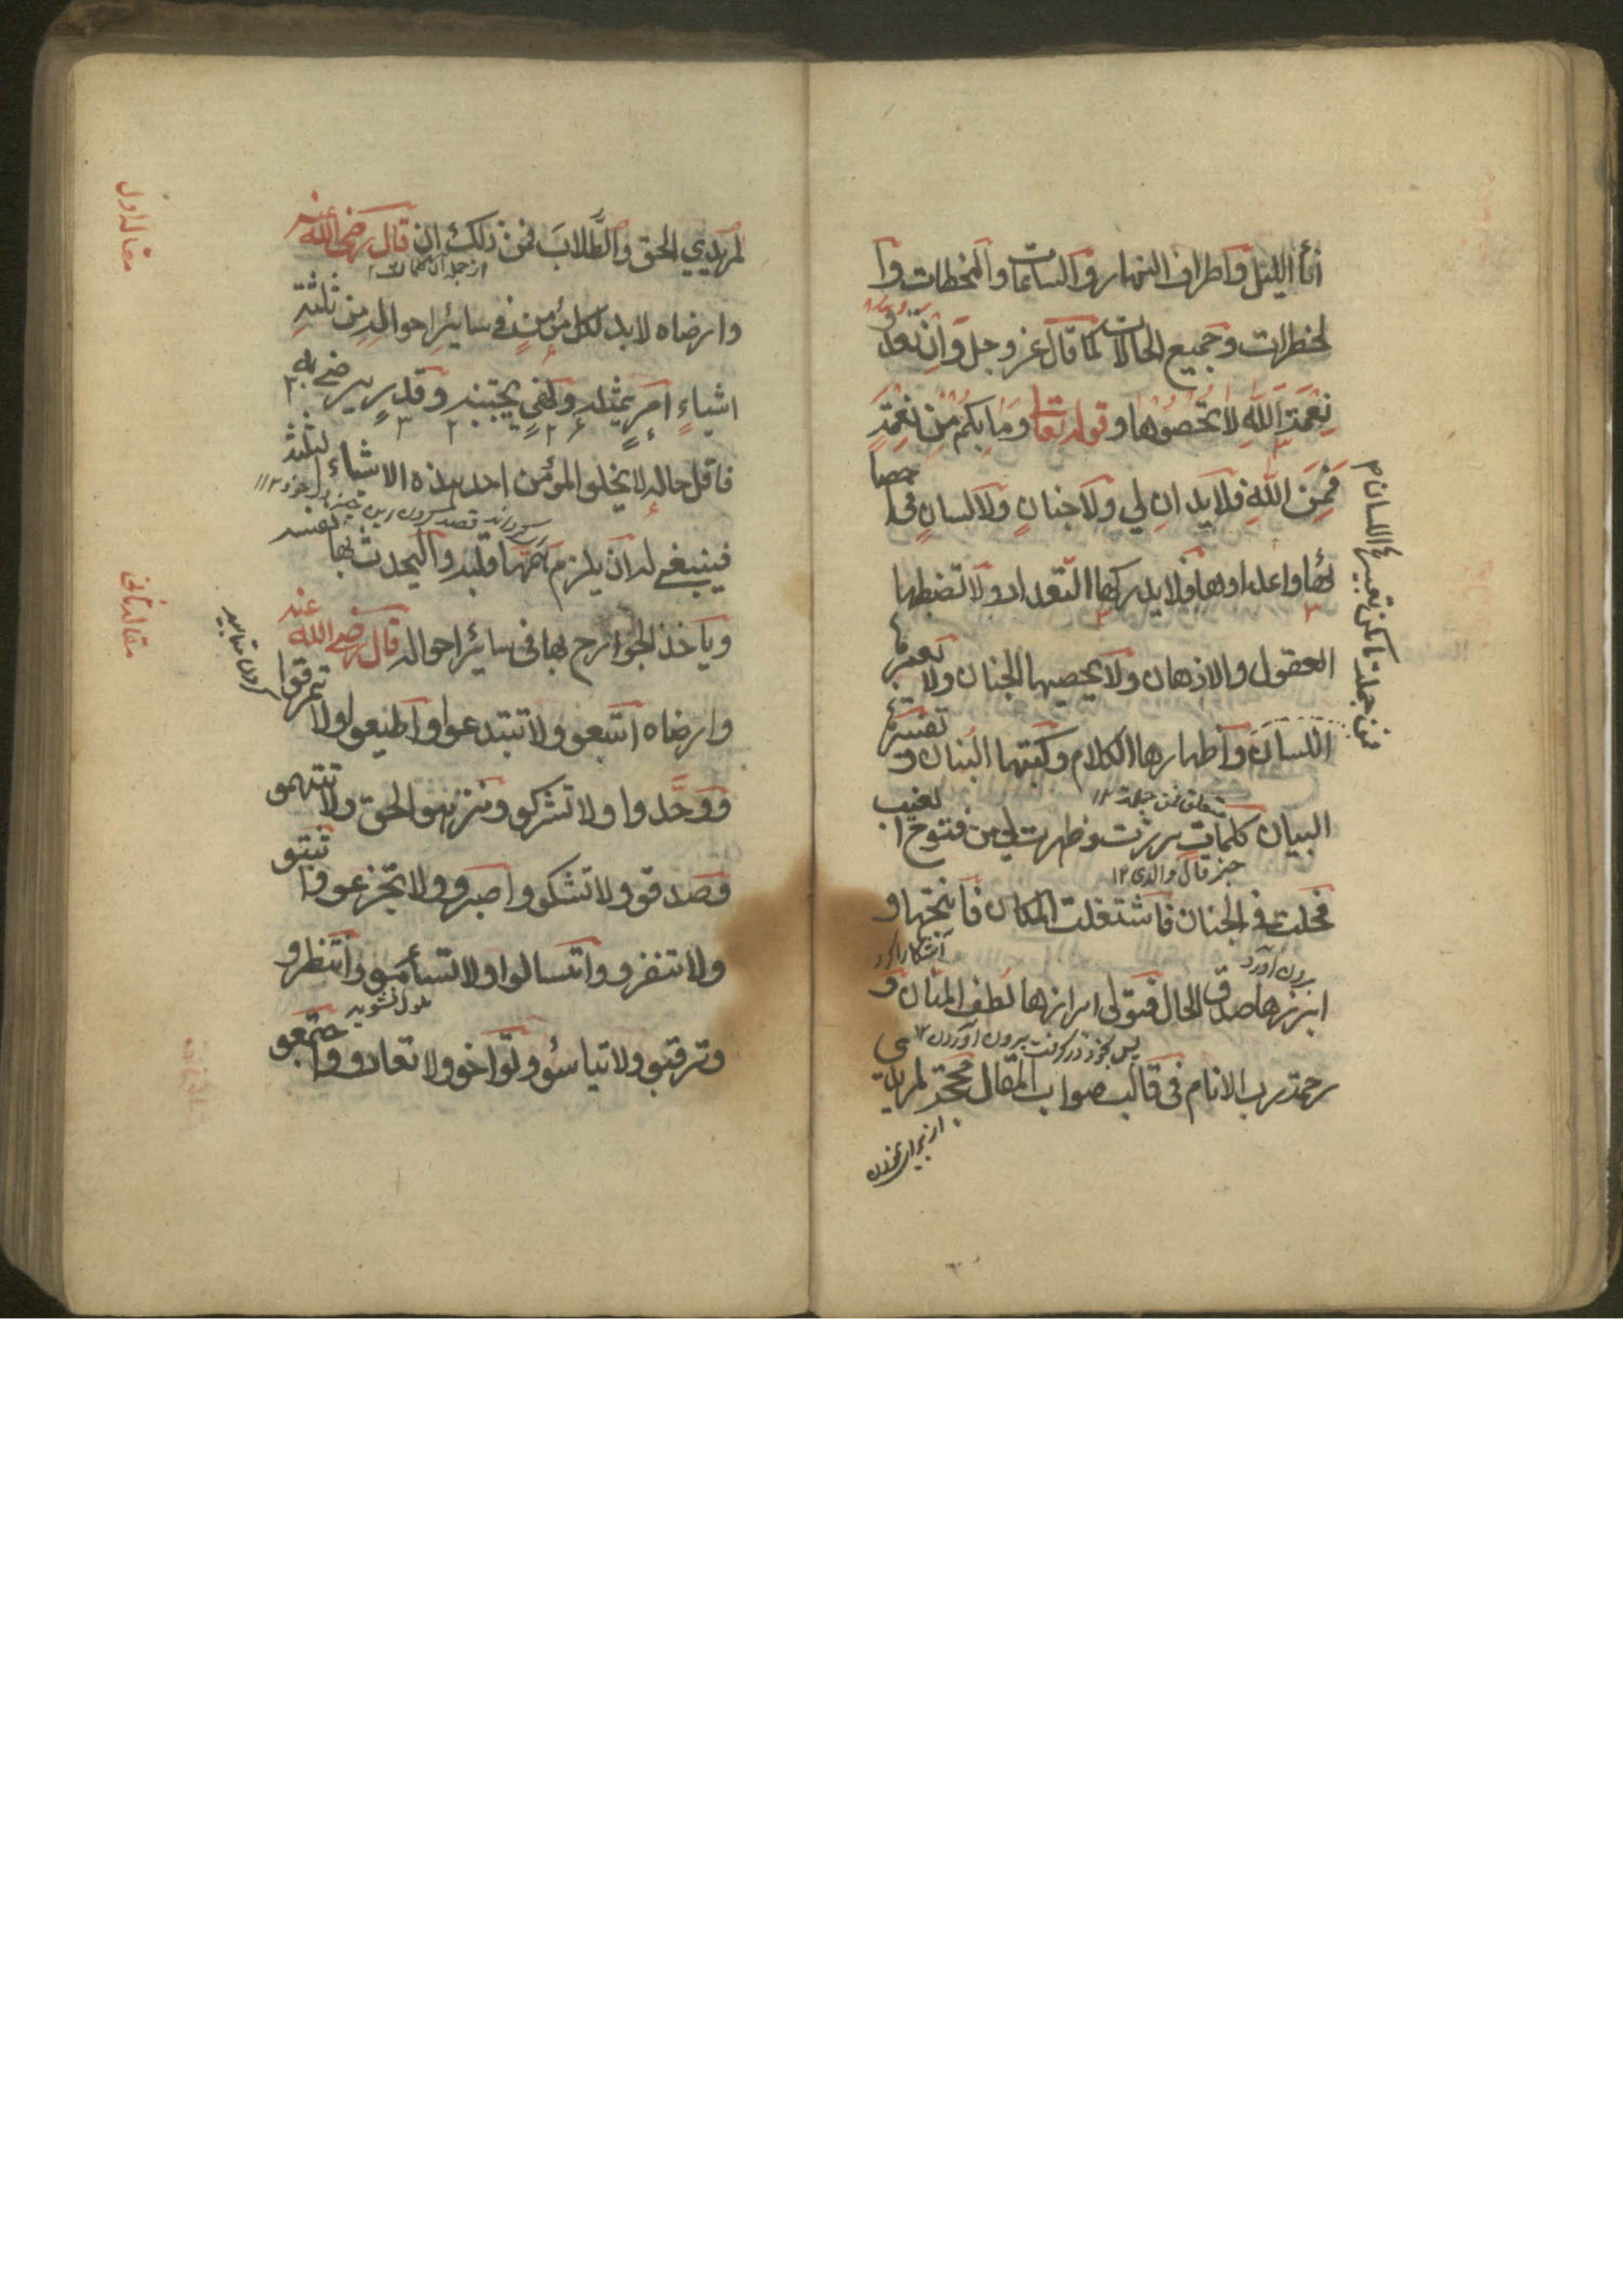 أناء الليل واطراف النهار والساعات واللحظات وا
لخطرات وجميع الحالات كما قال عز وجل وان تعدو
نعمة الله لا تحصوها وقوله تعا وما بكم من نعمة
فمن الله فلا يدان لي ولا جنان ولا لسان في احصا
ئها واعدادها فلا يدركها التعداد ولا تضبطها
العقول والاذهان ولا يحصيها الجنان ولا يعبرها
اللسان واظهارها الكلام وكتبها البنان و تفسيرها
متعلق من جملة ١٢
البيان كلمات برزت وظهرت لي من فتوح الغيب
فحلت في الجنان فاشتغلت المكان فأنتجها و
آشكارا كرد
برون آورد
ابرزها صدق الحال فتولى ابرازها لطف المنان و
رحمة رب الانام في قالب صواب المقال حجة لمريدي
لمريدي الحق والطلاب فمن ذلك ان قال رضي الله عنه
از جمله آن كلمات
وارضاه لا بد لكل مؤمن في سائر احواله من ثلثة
اشياء امر يمثله ونهي يجتنبه وقدر يرضى به
فاقل حاله لا يخلو المؤمن احد هذه الاشياء الثلثة
فينبغي له ان يلزم همها قلبه واليحدث بها نفسه
وياخذ الجوارح بها في سائر احواله قال رضي الله عنه
وارضاه اتبعو ولا تبتدعوا واطيعو ولا تمرقوا
ووحدوا ولا تشركو ونزهو الحق ولا تتهمو
وصدقو ولا تشكو واصبرو ولا تجزعو واثبتو
ولا تنفرو واتسالوا ولا تسأمو وانتظرو
ملول نشويد
وترقبو ولا تياسؤ وتواخو ولا تعادو واجتمعو
مقاله اول
مقاله ثانى